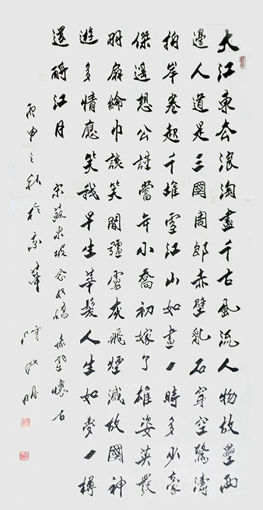 大江東去浪淘盡千古風流人物故壘西
邊人道是三國周郎赤壁亂石穿空驚濤
拍岸卷起千堆雪江山如畫一時多少豪
傑遙想公謹當年小喬初嫁了雄姿英發
羽扇綸巾談笑間疆虜灰飛煙滅故國神
遊多情應笑我早生華髮人生如夢一樽
還酹江月 宋蘇東坡念奴嬌 赤壁懷古
丙申之秋於京華